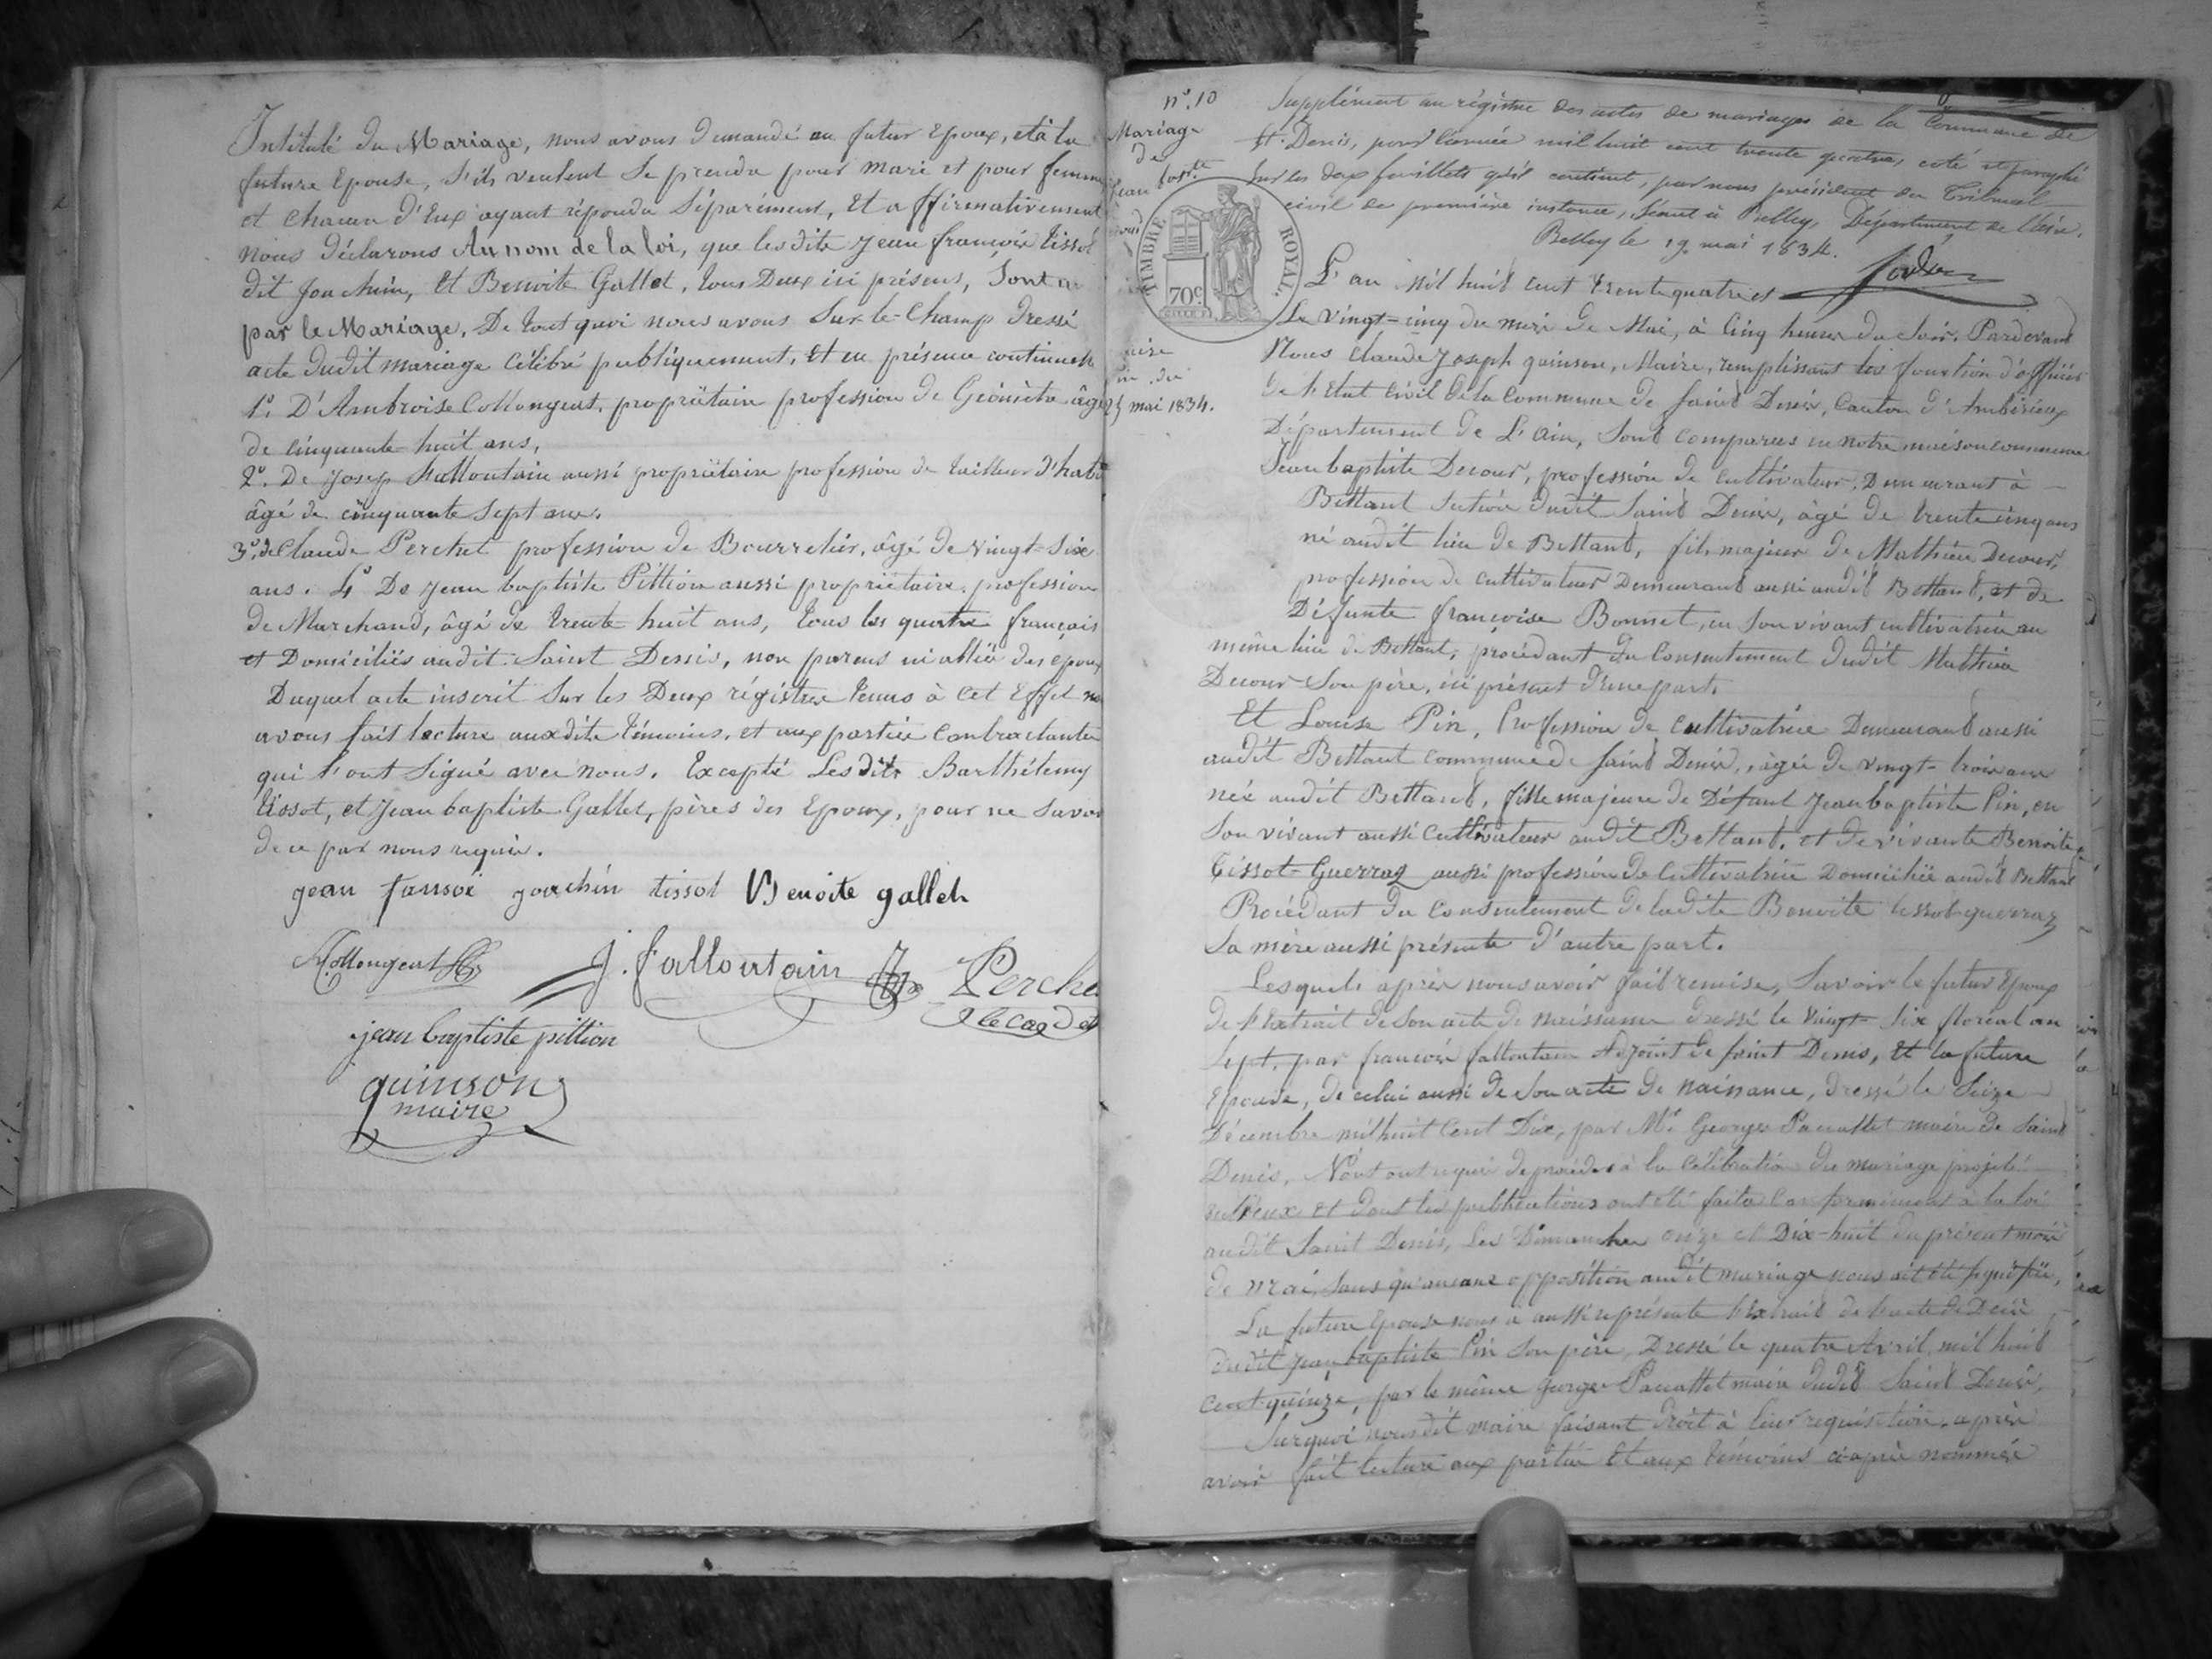 Intitulé du Mariage, nous avons demandé au futur Epoux, et à la
future Epouse, s'ils veulent se prendre pour mari et pour femme
et chacun d'Eux ayant répondu séparément, et affirmativement
nous déclarons Au nom de la loi, que lesdits Jean françois tissot
dit Joachim, et Benoite Gallet, tous Deux ici présens, sont
par le Mariage. De tout quoi nous avons sur-le-Champ dressé
acte dudit mariage célébré publiquement, et en présence continuelle
1.° D'Ambroise Collongeat, propriétaire profession de Géomètre âgé
de cinquante-huit ans.
2.° De Josep falloutain aussi propriétaire profession de tailleur d'habi
âgé de cinquante sept ans.
3.° de Claude Perchet profession de Bourrelier, âgé de vingt-six
ans. 4.° De Jean baptiste Pittion aussi propriétaire, profession
de Marchand, âgé de trente-huit ans, tous les quatre français
et Domiciliés audit Saint Denis, non parens ni alliés des epoux
Duquel acte inscrit sur les Deux régistres tenus à cet Effet
avons fait lecture auxdits témoins, et aux parties contractantes
qui l'ont signé avec nous. Excepté Lesdits Barthélemy
tissot, et Jean baptiste Gallet, pères des Epoux, pour ne savoir
de ce par nous requis.
jean fansoi joachin tissot Benoite gallet
Collongeat
J. falloutain
Perche
le cadet
jean baptiste pittion
quinson
maire
n°. 10
Mariage
de
Jean bap.te
TIMBRE ROYAL.
70c.
25 mai 1834.
Supplément au régistre des actes de mariages de la Commune de
St. Denis, pour l'année mil huit cent trente quatre, coté et paraphé
sur les deux feuillets qu'il contient, par nous président du Tribunal
civil de première instance, séant à Belley, Département de l'Ain.
Belley le 19 mai 1834.
L'an Mil huit cent trente quatre et
Le vingt-cinq du mois de Mai, à cinq heures du soir. Pardevant
Nous Claude Joseph quinson, Maire, remplissant les fonction d'officier
de l'Etat civil de la Commune de Saint Denis, Canton d'Ambérieux
Département de L'ain, sont comparus en notre maison commune
Jean baptiste Decour, profession de cultivateur, Demeurant à
Bettant section dudit Saint Denis, âgé de trente cinq ans
né audit lieu de Bettant, fils majeur de Mathieu Decour,
profession de cultivateur Demeurant aussi audit Bettant, et de
Défunte françoise Bonnet, en son vivant cultivatrice au
même lieu de Bettant, procédant du Consentement dudit Mathieu
Decour son père, ici présent d'une part.
Et Louise Pin, Profession de cultivatrice Demeurant aussi
audit Bettant commune de Saint Denis, âgée de vingt-trois ans
née audit Bettant, fille majeure de Défunt Jean baptiste Pin, en
son vivant aussi cultivateur audit Bettant, et de vivante Benoite
Tissot-Guerraz aussi profession de cultivatrice Domiciliée audit Bettant
Procédant du Consentement de ladite Benoite tissot-guerraz
sa mère aussi présente d'autre part.
Lesquels après nous avoir fait remise, savoir le futur Epoux
de l'Extrait de son acte de naissance dressé le vingt-six floréal an
sept, par françois falloutain Adjoint de Saint Denis, et la future
Epouse, de celui aussi de son acte de naissance, dressé le seize
Décembre mil huit cent Dix, par Mr. Georges Pacallet maire de Saint
Denis, Nous ont requis de procéder à la célébration du mariage projeté
entr'eux et dont les publications ont été faites Conformément à la loi
audit Saint Denis, Les Dimanches onze et Dix-huit du présent mois
de mai, sans qu'aucune opposition audit mariage nous ait été signifiée,
La future Epouse nous a aussi représenté l'Extrait de l'acte de Décès
dudit Jean baptiste Pin son père, Dressé le quatre Avril mil huit
cent quinze, par le même george Pacallet maire dudit Saint Denis,
Surquoi nous dit maire faisant droit à leur requisition, après
avoir fait lecture aux parties et aux témoins ci-après nommés